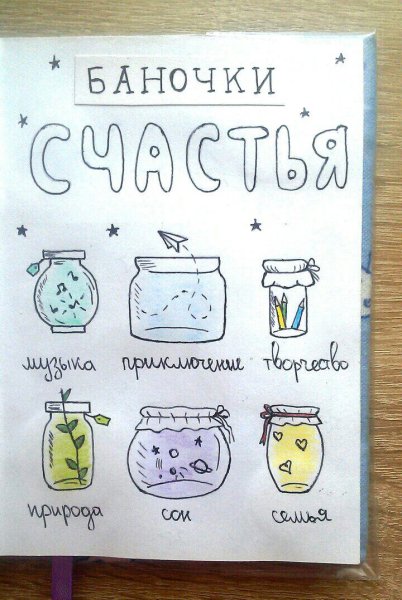 БАНОЧКИ
СЧАСТЬЯ
музыка приключение творчество
природа сон семья